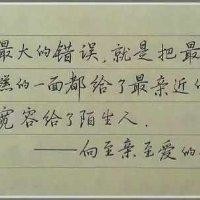 最大的错误,就是把最
的一面都给了最亲近的
宽容给了陌生人.
——向至亲至爱的